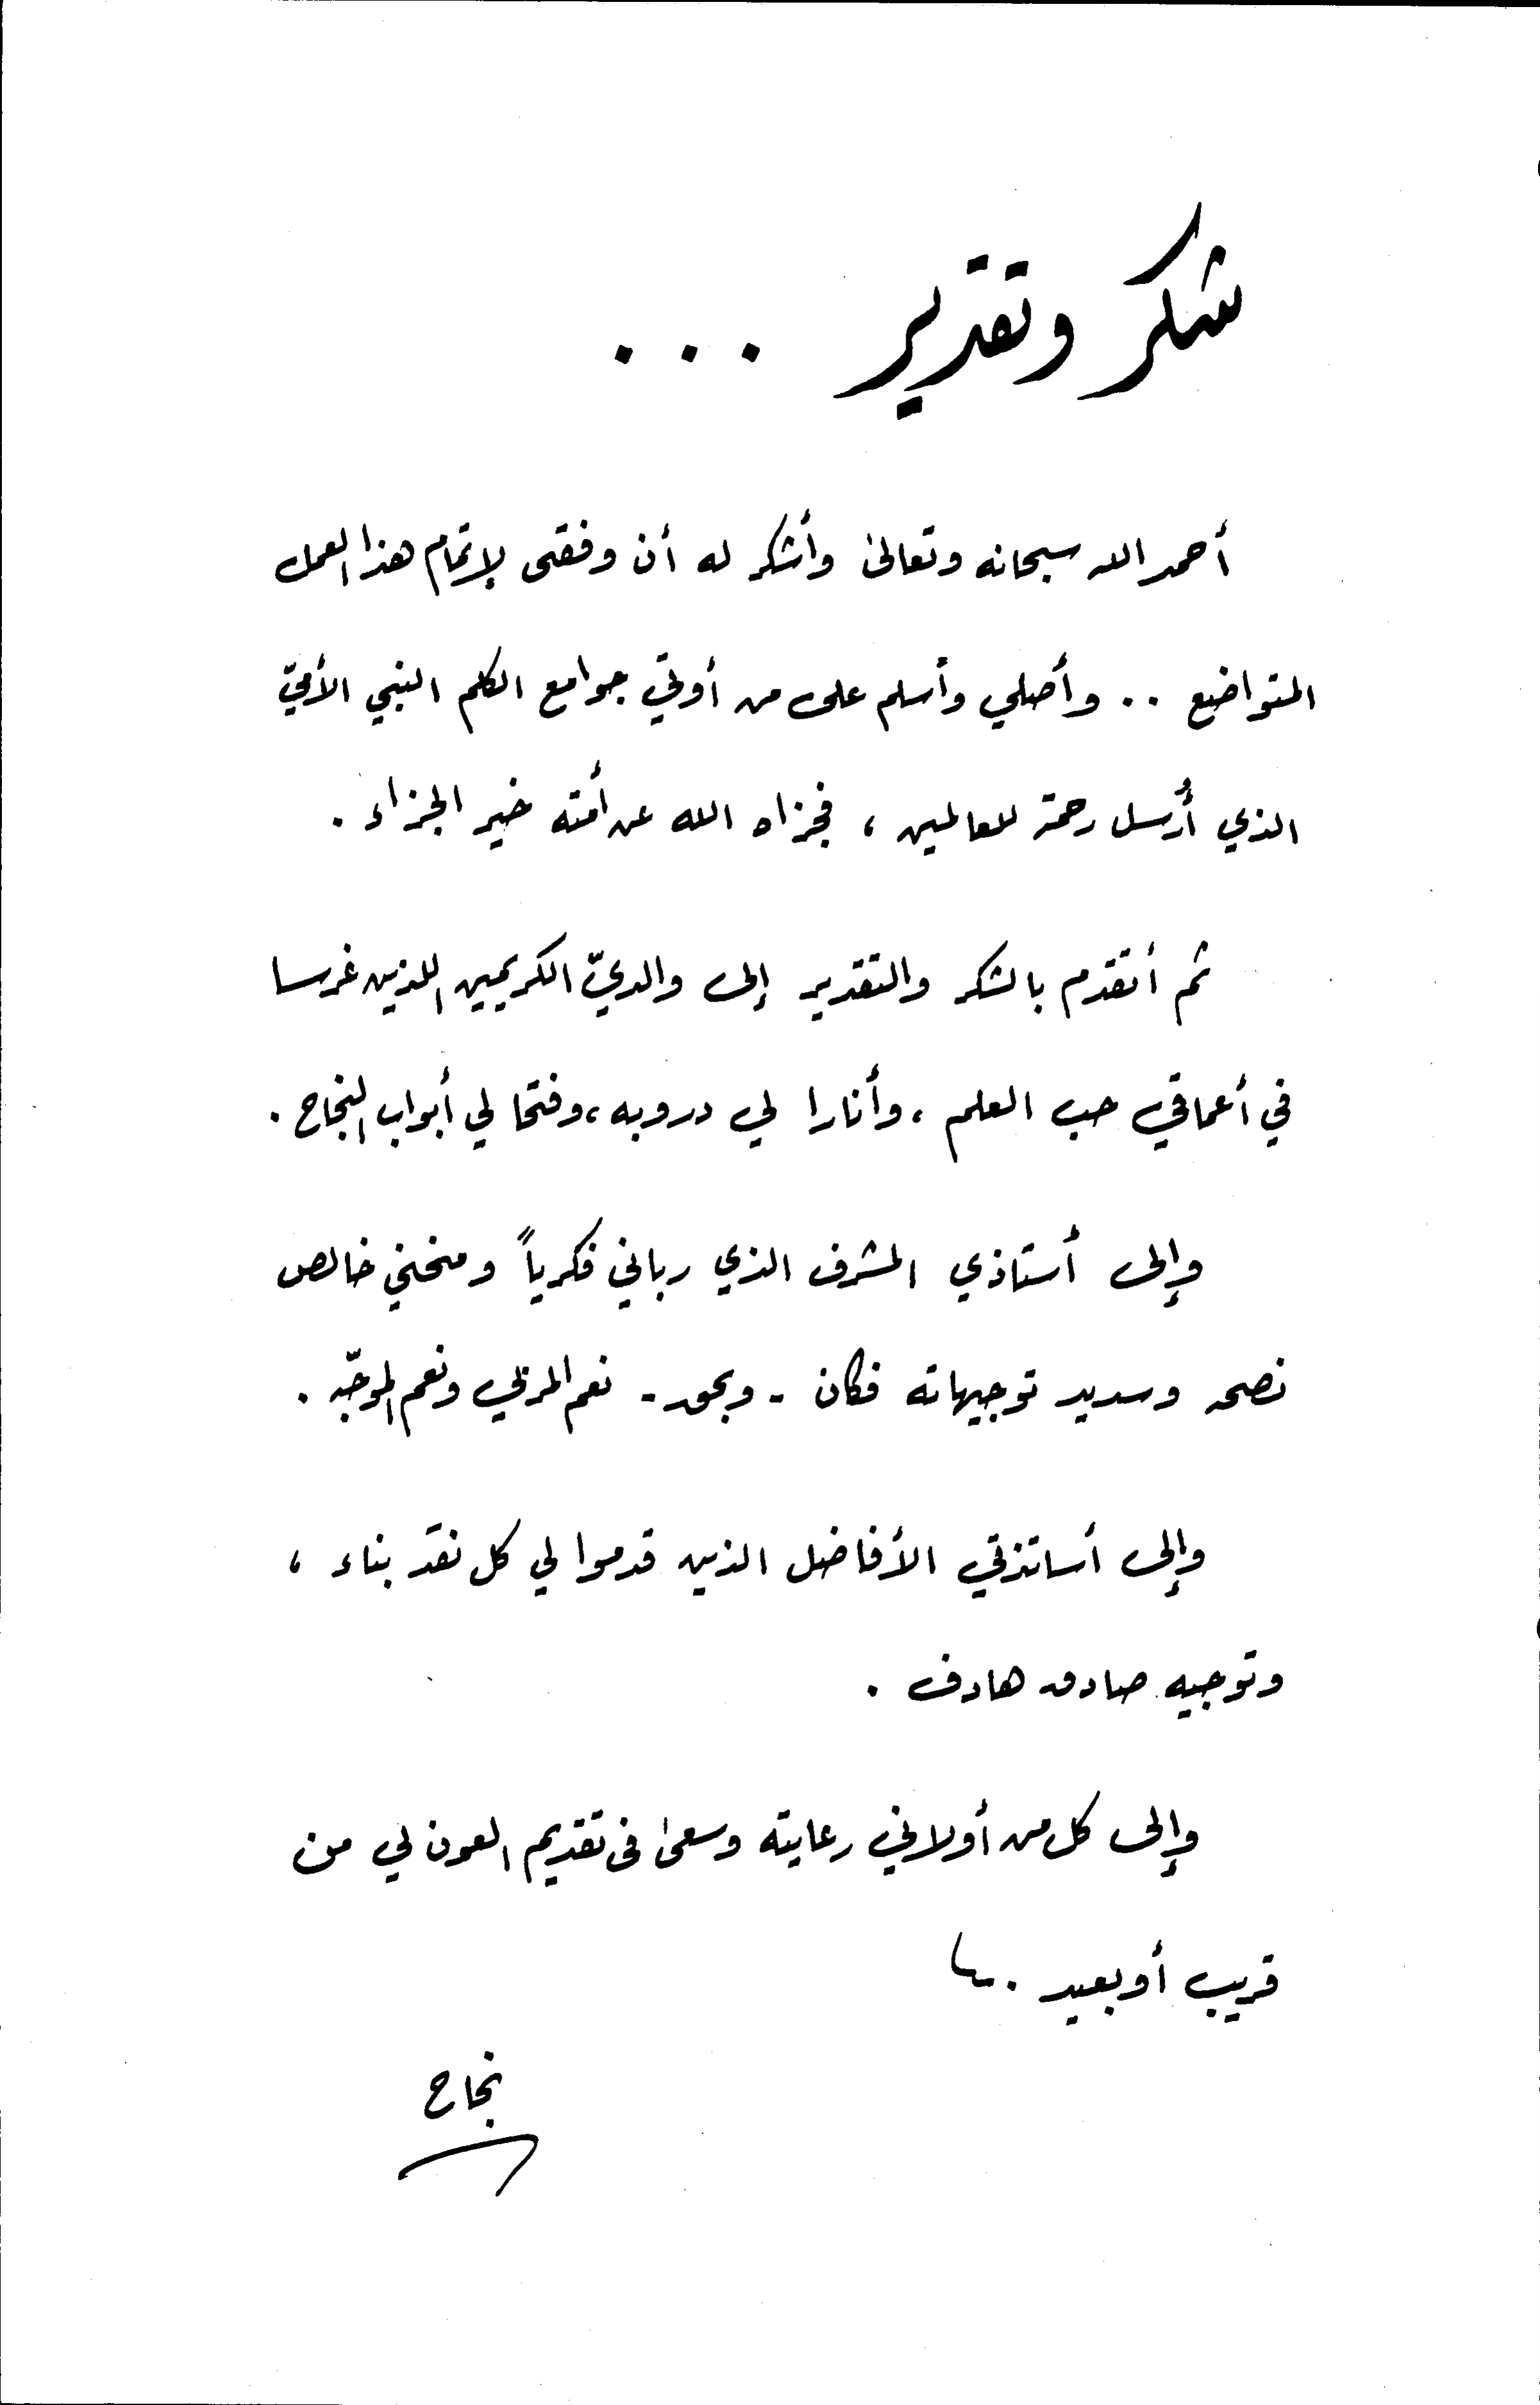 شكر وتقدير ...
أحمد الله سبحانه وتعالى وأشكر له أن وفقني لإتمام هذا العمل
المتواضع .. وأصلي وأسلم على من أوتي جوامع الكلم النبي الأميّ
الذي أُرسل رحمة للعالمين ، فجزاه الله عن أمته خير الجزاء .
ثم أتقدم بالشكر والتقدير إلى والديّ الكريمين اللذين غرسا
في أعماقي حب العلم ، وأنارا لي دروبه ، وفتحا لي أبواب النجاح .
وإلى أستاذي المشرف الذي رباني فكرياً ومنحني خالص
نصحه وسديد توجيهاته فكان - وبحق - نعم المربي ونعم الموجّه .
وإلى أساتذتي الأفاضل الذين قدموا لي كل نقد بناء ،
وتوجيه صادق هادف .
وإلى كل من أولاني رعايته وسعى فى تقديم العون لي من
قريب أو بعيد .
نجاح